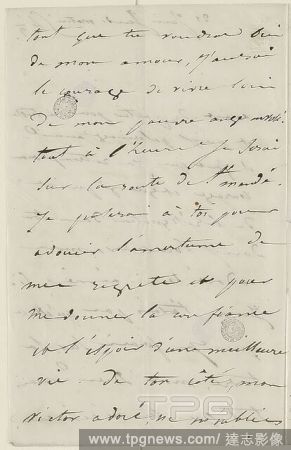 tant que tu voudras bien
de mon amour, j'aurai
le courage de vivre loin
de mon pauvre ange
tout à l'heure je serai
sur la route de St mandé.
Je penserai à toi pour
adoucir l'amertume de
mes regrets et pour
me donner la confiance
et l'espoir d'une meilleure
vie. De ton côté, mon
victor adoré, ne m'oublies
TPG
www.tpgnews.com/達志影像